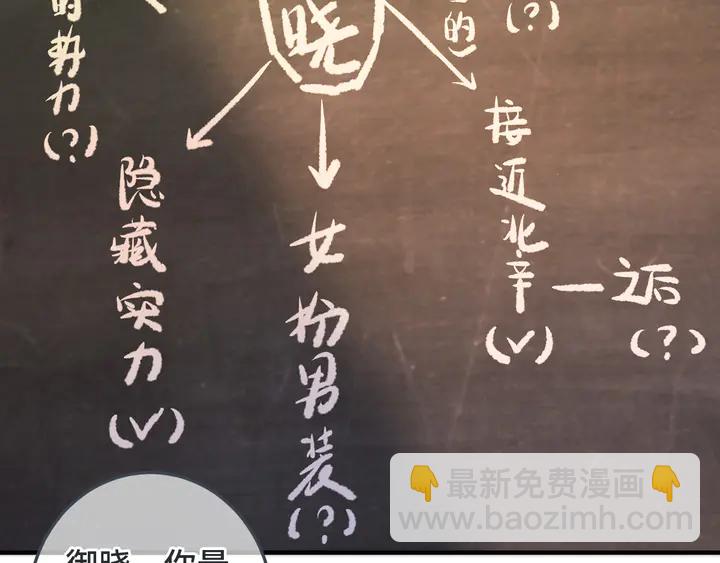 的势力
(?)
隐藏实力
(√)
晓
女扮男装
(?)
的)
(?)
接近北辛—之后
(√)
(?)
👇最新免费漫画👇
www.baozimh.com
御晓，你是